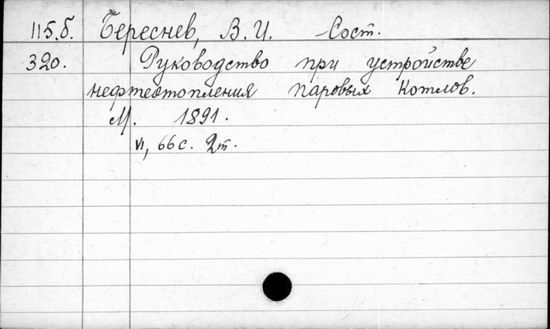 115.б. Береснев, В. И. Сост.
320. Руководство при устройстве
нефтеотопления паровых котлов.
М. 1891.
VI, 66 с. 2т.